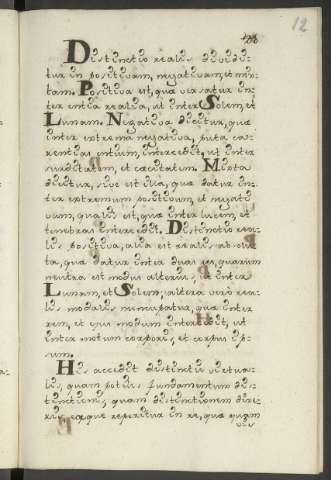 12
Distinctio realis dividi-
tur in positivam, negativam, et mix-
tam. Positiva est, quæ versatur in-
ter entia realia, ut inter Solem, et
Lunam. Negativa dicitur, quæ
inter extrema negativa, puta ca-
rentias entium, intercedit, ut inter
surditatem, et cæcitatem. Mixta
dicitur, sive est illa, quæ datur in-
ter extremum positivum, et negati-
vum, qualis est, quæ inter lucem, et
tenebras intercedit. Distinctio rea-
lis positiva, alia est realis absolu-
ta, quæ datur inter duas res, quarum
neutra est modus alterius, ut inter
Lunam, et Solem; altera verò rea-
lis modalis nuncupatur, quæ inter
rem, et ejus modum intercedit, ut
inter motum corporis, et corpus ip-
sum.
His accedit distinctio virtua-
lis, quam potius fundamentum dis-
tinctionis, quam distinctionem dixe-
ris, eaque reperitur in re, quæ quam